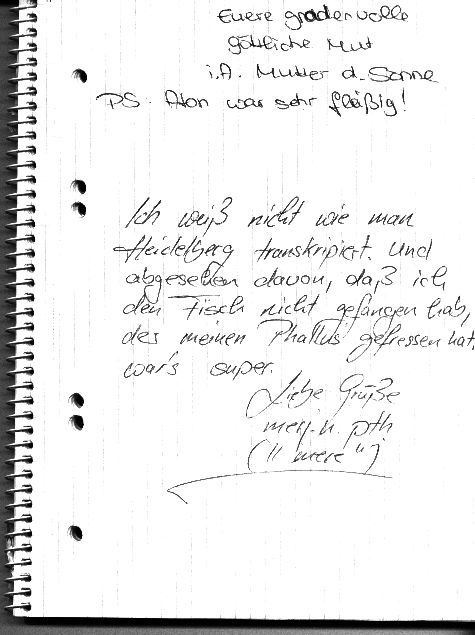 Euere gnadenvolle
göttliche Mut
i.A. Mutter d. Sonne
PS. Aton war sehr fleißig!
Ich weiß nicht wie man
Heidelberg transkripiert. Und
abgesehen davon, daß ich
den Fisch nicht gefangen hab,
der meinen Phallus gefressen hat,
war's super.
Liebe Grüße
merj.n.pth
("mere")